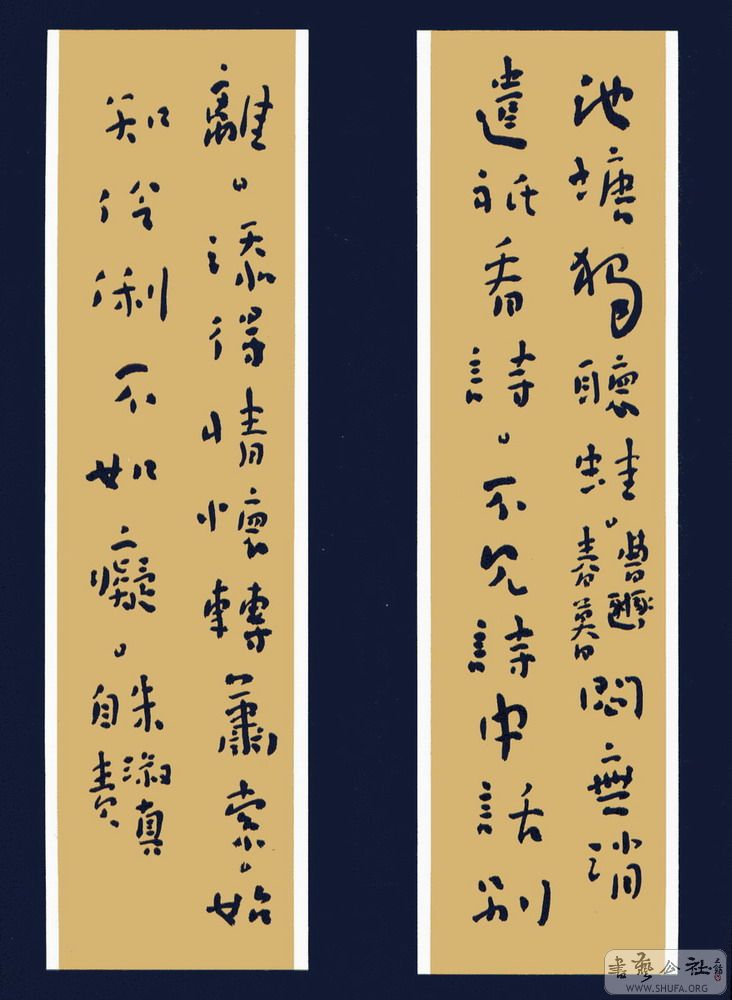 池塘獨聽蛙。曹豳春暮悶無消
遣祇看詩。不見詩中話別
離。添得情懷轉蕭索。始
知伶俐不如癡。朱淑真自責
書藝公社
WWW.SHUFA.ORG